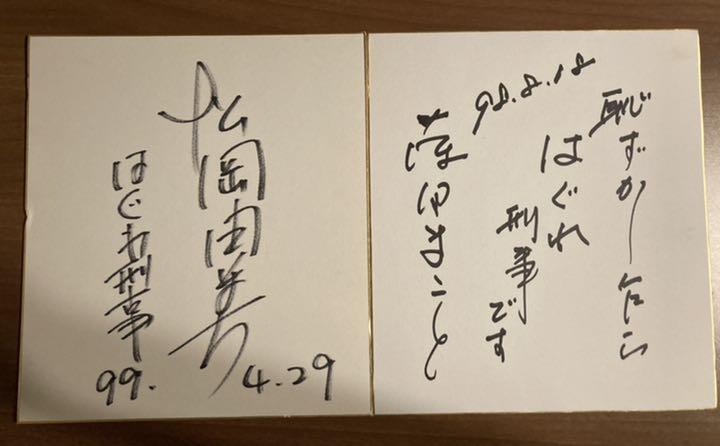 恥ずかし乍ら
はぐれ
刑事です
98.8.18
藤田まこと
松岡由美
はぐれ刑事
99. 4.29